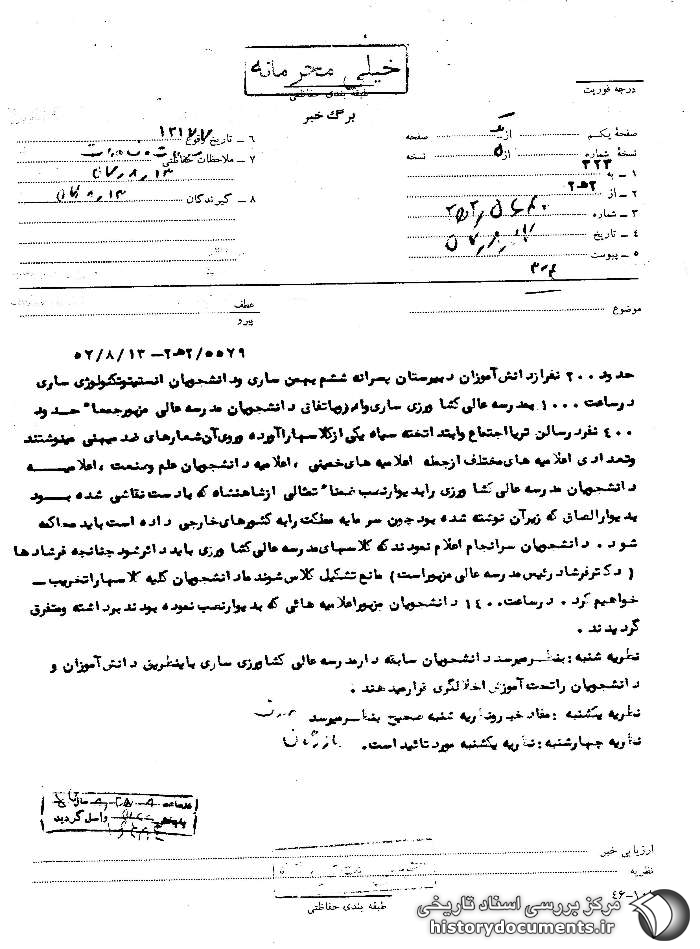 خیلی محرمانه
طبقه بندی حفاظتی
برگ خبر
درجه فوریت
صفحهٔ یکم از صفحه
نسخهٔ شماره از ۵ نسخه
۱ ـ به ۳۲۲
۲ ـ از ۲ه۲
۳ ـ شماره
۴ ـ تاریخ
۵ ـ پیوست
۶ ـ تاریخ وقوع
۷ ـ ملاحظات حفاظتی
۸ ـ گیرندگان
موضوع
عطف
پیرو
۵۷/۸/۱۳ – ۲ه۲/۵۵۷۹
حدود ۲۰۰ نفر از دانش‌آموزان دبیرستان پسرانه ششم بهمن ساری و دانشجویان انستیتو تکنولوژی ساری
در ساعت ۱۰۰۰ بمدرسه عالی کشاورزی ساری وارد و باتفاق دانشجویان مدرسه عالی مزبور جمعا" حدود
۴۰۰ نفر در سالن تریا اجتماع و ابتدا تخته سیاه یکی از کلاسها را آورده و روی آن شعارهای ضد میهنی مینوشتند
و تعدادی اعلامیه های مختلف از جمله اعلامیه های خمینی ، اعلامیه دانشجویان علم و صنعت ، اعلامیه
دانشجویان مدرسه عالی کشاورزی را بدیوار نصب ضمنا" تمثالی از شاهنشاه که با دست نقاشی شده بود
بدیوار الصاق که زیر آن نوشته شده بود چون سرمایه مملکت را به کشورهای خارجی داده است باید محاکمه
شود . دانشجویان سرانجام اعلام نمودند که کلاسهای مدرسه عالی کشاورزی باید دائر شود چنانچه فرشادها
( دکتر فرشاد رئیس مدرسه عالی مزبور است ) مانع تشکیل کلاس شوند ما دانشجویان کلیه کلاسها را تخریب –
خواهیم کرد . در ساعت ۱۴۰۰ دانشجویان مزبور اعلامیه هائی که بدیوار نصب نموده بودند برداشته و متفرق
گردیدند .
نظریه شنبه : بنظر میرسد دانشجویان سابقه دار مدرسه عالی کشاورزی ساری باینطریق دانش‌آموزان و
دانشجویان را تحت آموزش اخلالگری قرار میدهند .
نظریه یکشنبه : مفاد خبر و نظریه شنبه صحیح بنظر میرسد
نظریه چهارشنبه : نظریه یکشنبه مورد تائید است .
واصل گردید
ارزیابی خبر
نظریه
طبقه بندی حفاظتی
مرکز بررسی اسناد تاریخی
historydocuments.ir